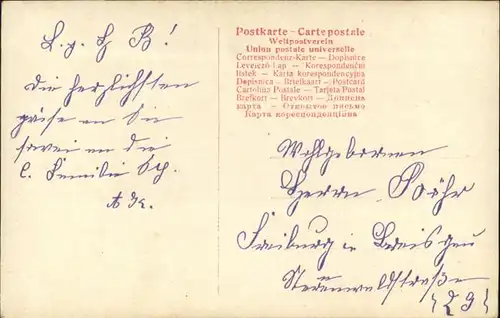 L. g. H B!
die herzlichsten
grüße an Sie
sowie an die
l. Familie Sch.
Postkarte – Carte postale
Weltpostverein
Union postale universelle
Correspondenz-Karte – Dopisnice
Levelező-Lap – Korespondenční
lístek – Karta korespondencyjna
Dopisnica – Briefkaart – Postcard
Cartolina Postale – Tarjeta Postal
Brefkort – Brevkort – Дописна
карта – Открытое письмо
Карта кореспонденційна
Wohlgeboren
Herrn Bähr
Freiburg in Breisgau
29